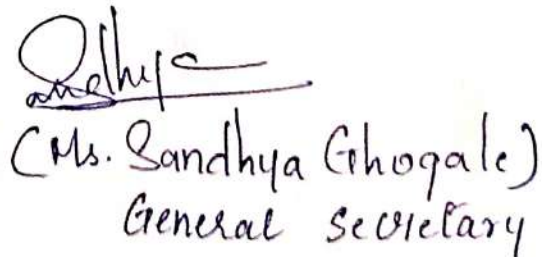 Sandhya
(Ms. Sandhya Ghogale)
General Secretary